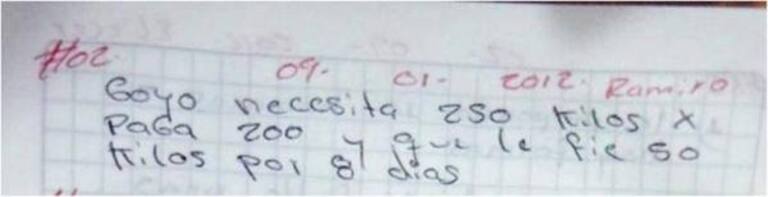 #02 09- 01- 2012. Ramiro
Goyo necesita 250 Kilos x
PaGa 200 y que le fie 50
Kilos por 8 dias